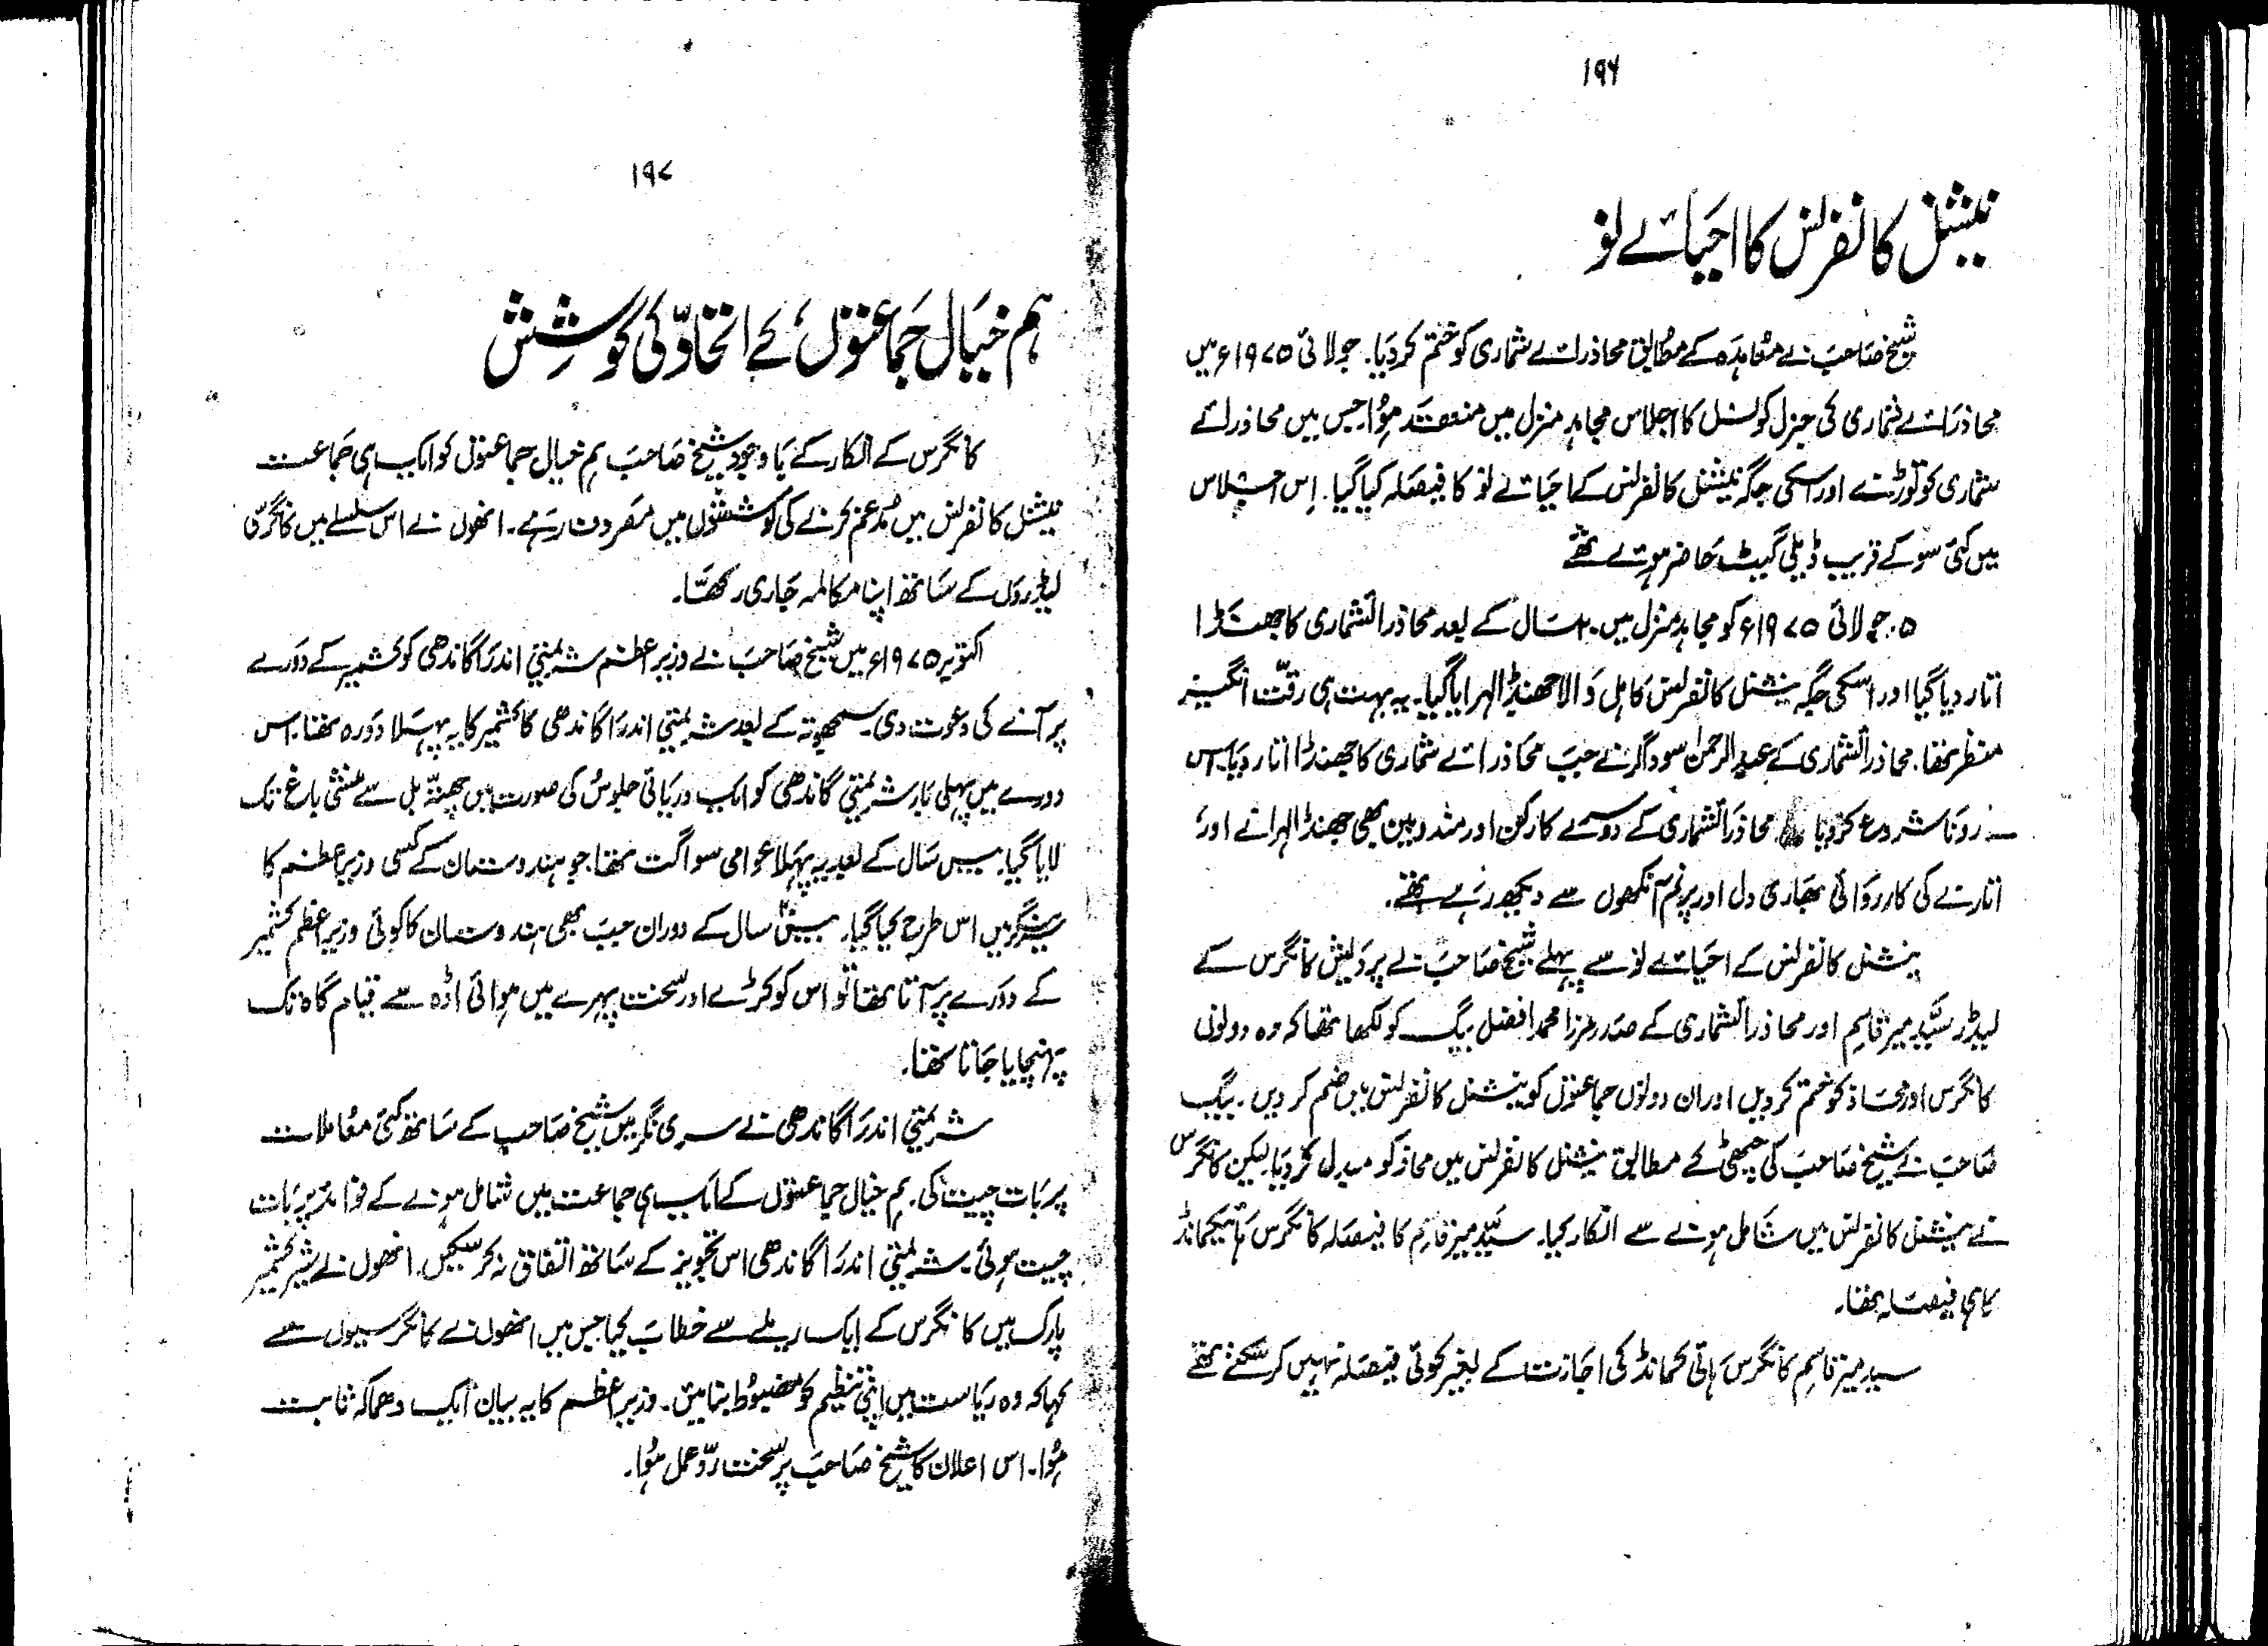 ۱۹۶
نیشنل کانفرنس کا احیائے نو
شیخ صاحب نے معاہدہ کے مطابق محاذ رائے شماری کو ختم کر دیا۔ جولائی ۱۹۷۵ء میں
محاذ رائے شماری کی جنرل کونسل کا اجلاس مجاہد منزل میں منعقد ہؤا جس میں محاذ رائے
شماری کو توڑنے اور اسکی جگہ نیشنل کانفرنس کے احیائے نو کا فیصلہ کیا گیا۔ اِس اجلاس
میں کئی سو کے قریب ڈیلی گیٹ حاضر ہوئے تھے
۵۔ جولائی ۱۹۷۵ء کو مجاہد منزل میں ۲۰ سال کے بعد محاذ رائشماری کا جھنڈا
اتار دیا گیا اور اسکی جگہ نیشنل کانفرنس کا ہل والا جھنڈا لہرایا گیا۔ یہ بہت ہی رقّت انگیز
منظر تھا۔ محاذ رائشماری کے عبدالرحمٰن سوداگر نے جب محاذ رائے شماری کا جھنڈا اتار دیا۔ اس
نے رونا شروع کر دیا محاذ رائشماری کے دوسرے کارکن اور مندوبین بھی جھنڈا لہرانے اور
اتارنے کی کارروائی بھاری دل اور پرنم آنکھوں سے دیکھ رہے تھے۔
نیشنل کانفرنس کے احیائے نو سے پہلے شیخ صاحب نے پردیش کانگرس کے
لیڈر سیّد میر قاسم اور محاذ رائشماری کے صدر مرزا محمد افضل بیگ کو لکھا تھا کہ وہ دونوں
کانگرس اور محاذ کو ختم کر دیں اور ان دونوں جماعتوں کو نیشنل کانفرنس میں ضم کر دیں۔ بیگ
صاحب نے شیخ صاحب کی چھٹی کے مطابق نیشنل کانفرنس میں محاذ کو مبدل کر دیا لیکن کانگرس
نے نیشنل کانفرنس میں شامل ہونے سے انکار کیا۔ سیّد میر قاسم کا فیصلہ کانگرس ہائیکمانڈ
کا ہی فیصلہ تھا۔
سید میر قاسم کانگرس ہائی کمانڈ کی اجازت کے بغیر کوئی فیصلہ نہیں کر سکتے تھے
۱۹۷
ہم خیال جماعتوں کے اتحاد کی کوشش
کانگرس کے انکار کے باوجود شیخ صاحب ہم خیال جماعتوں کو ایک ہی جماعت
نیشنل کانفرنس میں مُدغم کرنے کی کوششوں میں مصروف رہے۔ انھوں نے اس سلسلے میں کانگرسی
لیڈروں کے ساتھ اپنا مکالمہ جاری رکھا۔
اکتوبر ۱۹۷۵ء میں شیخ صاحب نے وزیر اعظم شریمتی اندرا گاندھی کو کشمیر کے دورے
پر آنے کی دعوت دی۔ سمجھوتہ کے بعد شریمتی اندرا گاندھی کا کشمیر کا یہ پہلا دورہ تھا۔ اس
دورے میں پہلی بار شریمتی گاندھی کو ایک دریائی جلوس کی صورت میں چھتہ بل سے منشی باغ تک
لایا گیا۔ بیس سال کے بعد یہ پہلا عوامی سواگت تھا۔ جو ہندوستان کے کسی وزیر اعظم کا
سرینگر میں اس طرح کیا گیا۔ بیس سال کے دوران جب بھی ہندوستان کا کوئی وزیر اعظم کشمیر
کے دورے پر آتا تھا تو اس کو کڑے اور سخت پہرے میں ہوائی اڈہ سے قیام گاہ تک
پہنچایا جاتا تھا۔
شریمتی اندرا گاندھی نے سری نگر میں شیخ صاحب کے ساتھ کئی معاملات
پر بات چیت کی۔ ہم خیال جماعتوں کے ایک ہی جماعت میں شامل ہونے کے فوائد پر بات
چیت ہوئی۔ شریمتی اندرا گاندھی اس تجویز کے ساتھ اتفاق نہ کر سکیں۔ انھوں نے شیر کشمیر
پارک میں کانگرس کے ایک ریلے سے خطاب کیا جس میں انھوں نے کانگرسیوں سے
کہا کہ وہ ریاست میں اپنی تنظیم کو مضبوط بنائیں۔ وزیر اعظم کا یہ بیان ایک دھماکہ ثابت
ہؤا۔ اس اعلان کا شیخ صاحب پر سخت ردّ عمل ہؤا۔